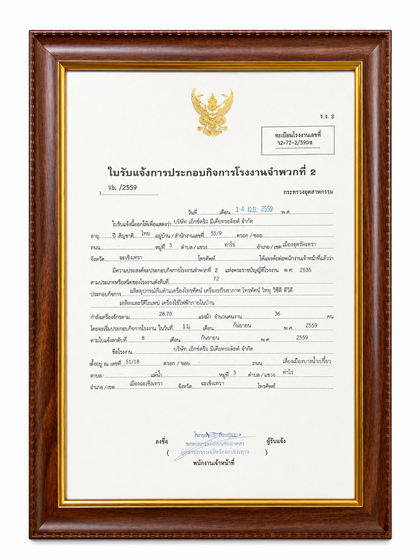 ร.ง. 2
ทะเบียนโรงงานเลขที่
ใบรับแจ้งการประกอบกิจการโรงงานจำพวกที่ 2
/2559
กระทรวงอุตสาหกรรม
วันที่ เดือน 14 ก.ย. 2559 พ.ศ.
ใบรับแจ้งนี้ออกให้เพื่อแสดงว่า บริษัท เอ็กซ์ตร้า มีเดียเทรดดิ้งส์ จำกัด
อายุ ปี สัญชาติ ไทย อยู่บ้าน/สำนักงานเลขที่ 51/9 ตรอก/ซอย
ถนน หมู่ที่ 3 ตำบล/แขวง ท่าไข่ อำเภอ/เขต เมืองฉะเชิงเทรา
จังหวัด ฉะเชิงเทรา โทรศัพท์ ได้แจ้งต่อพนักงานเจ้าหน้าที่แล้วว่า
มีความประสงค์จะประกอบกิจการโรงงานจำพวกที่ 2 แห่งพระราชบัญญัติโรงงาน พ.ศ. 2535
ตามประเภทหรือชนิดของโรงงานลำดับที่ 72
ประกอบกิจการ ผลิตอุปกรณ์เครื่องโทรทัศน์ วิทยุ
เครื่องใช้ไฟฟ้าภายในบ้าน
กำลังเครื่องจักรรวม 28.70 แรงม้า จำนวนคนงาน 36 คน
โดยจะเริ่มประกอบกิจการโรงงาน ในวันที่ เดือน กันยายน พ.ศ. 2559
ตามใบแจ้งลำดับที่ 8 เดือน กันยายน พ.ศ. 2559
ชื่อโรงงาน บริษัท เอ็กซ์ตร้า มีเดียเทรดดิ้งส์ จำกัด
ตั้งอยู่ ณ เลขที่ 51/18 ตรอก/ซอย ถนน
ตำบล หมู่ที่ 3 ตำบล/แขวง ท่าไข่
อำเภอ/เขต เมืองฉะเชิงเทรา จังหวัด ฉะเชิงเทรา โทรศัพท์
ลงชื่อ ผู้รับแจ้ง
( )
พนักงานเจ้าหน้าที่